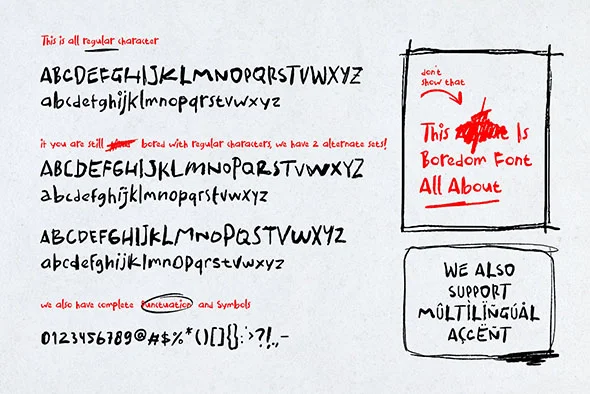 This is all regular character
ABCDEFGHIJKLMNOPQRSTVWXYZ
abcdefghijklmnopqrstvwxyz
if you are still bored with regular characters, we have 2 alternate sets!
ABCDEFGHIJKLMNOPQRSTVWXYZ
abcdefghijklmnopqrstvwxyz
ABCDEFGHIJKLMNOPQSTVWXYZ
abcdefghijklmnopqrstvwxyz
we also have complete Punctuation and Symbols
0123456789@#$%*()[]{}:>?!.,-
don't
show that
This Is
Boredom Font
All About
WE ALSO
SUPPORT
MÛLTÌLÏÑGÚÅL
AÇCËÑT